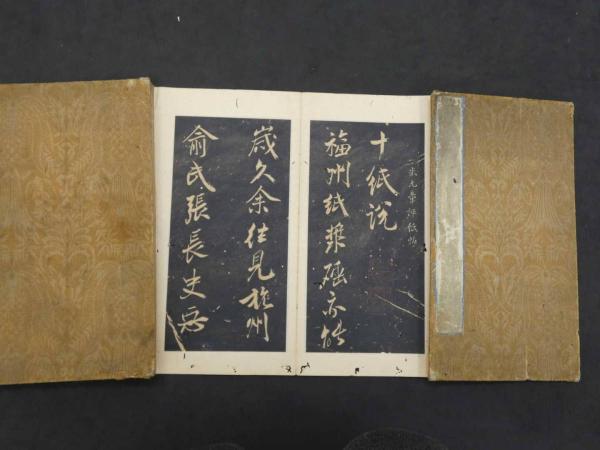 米元章評紙帖
十紙說
福州紙漿硾亦能
歲久余往見杭州
俞氏張長史惡